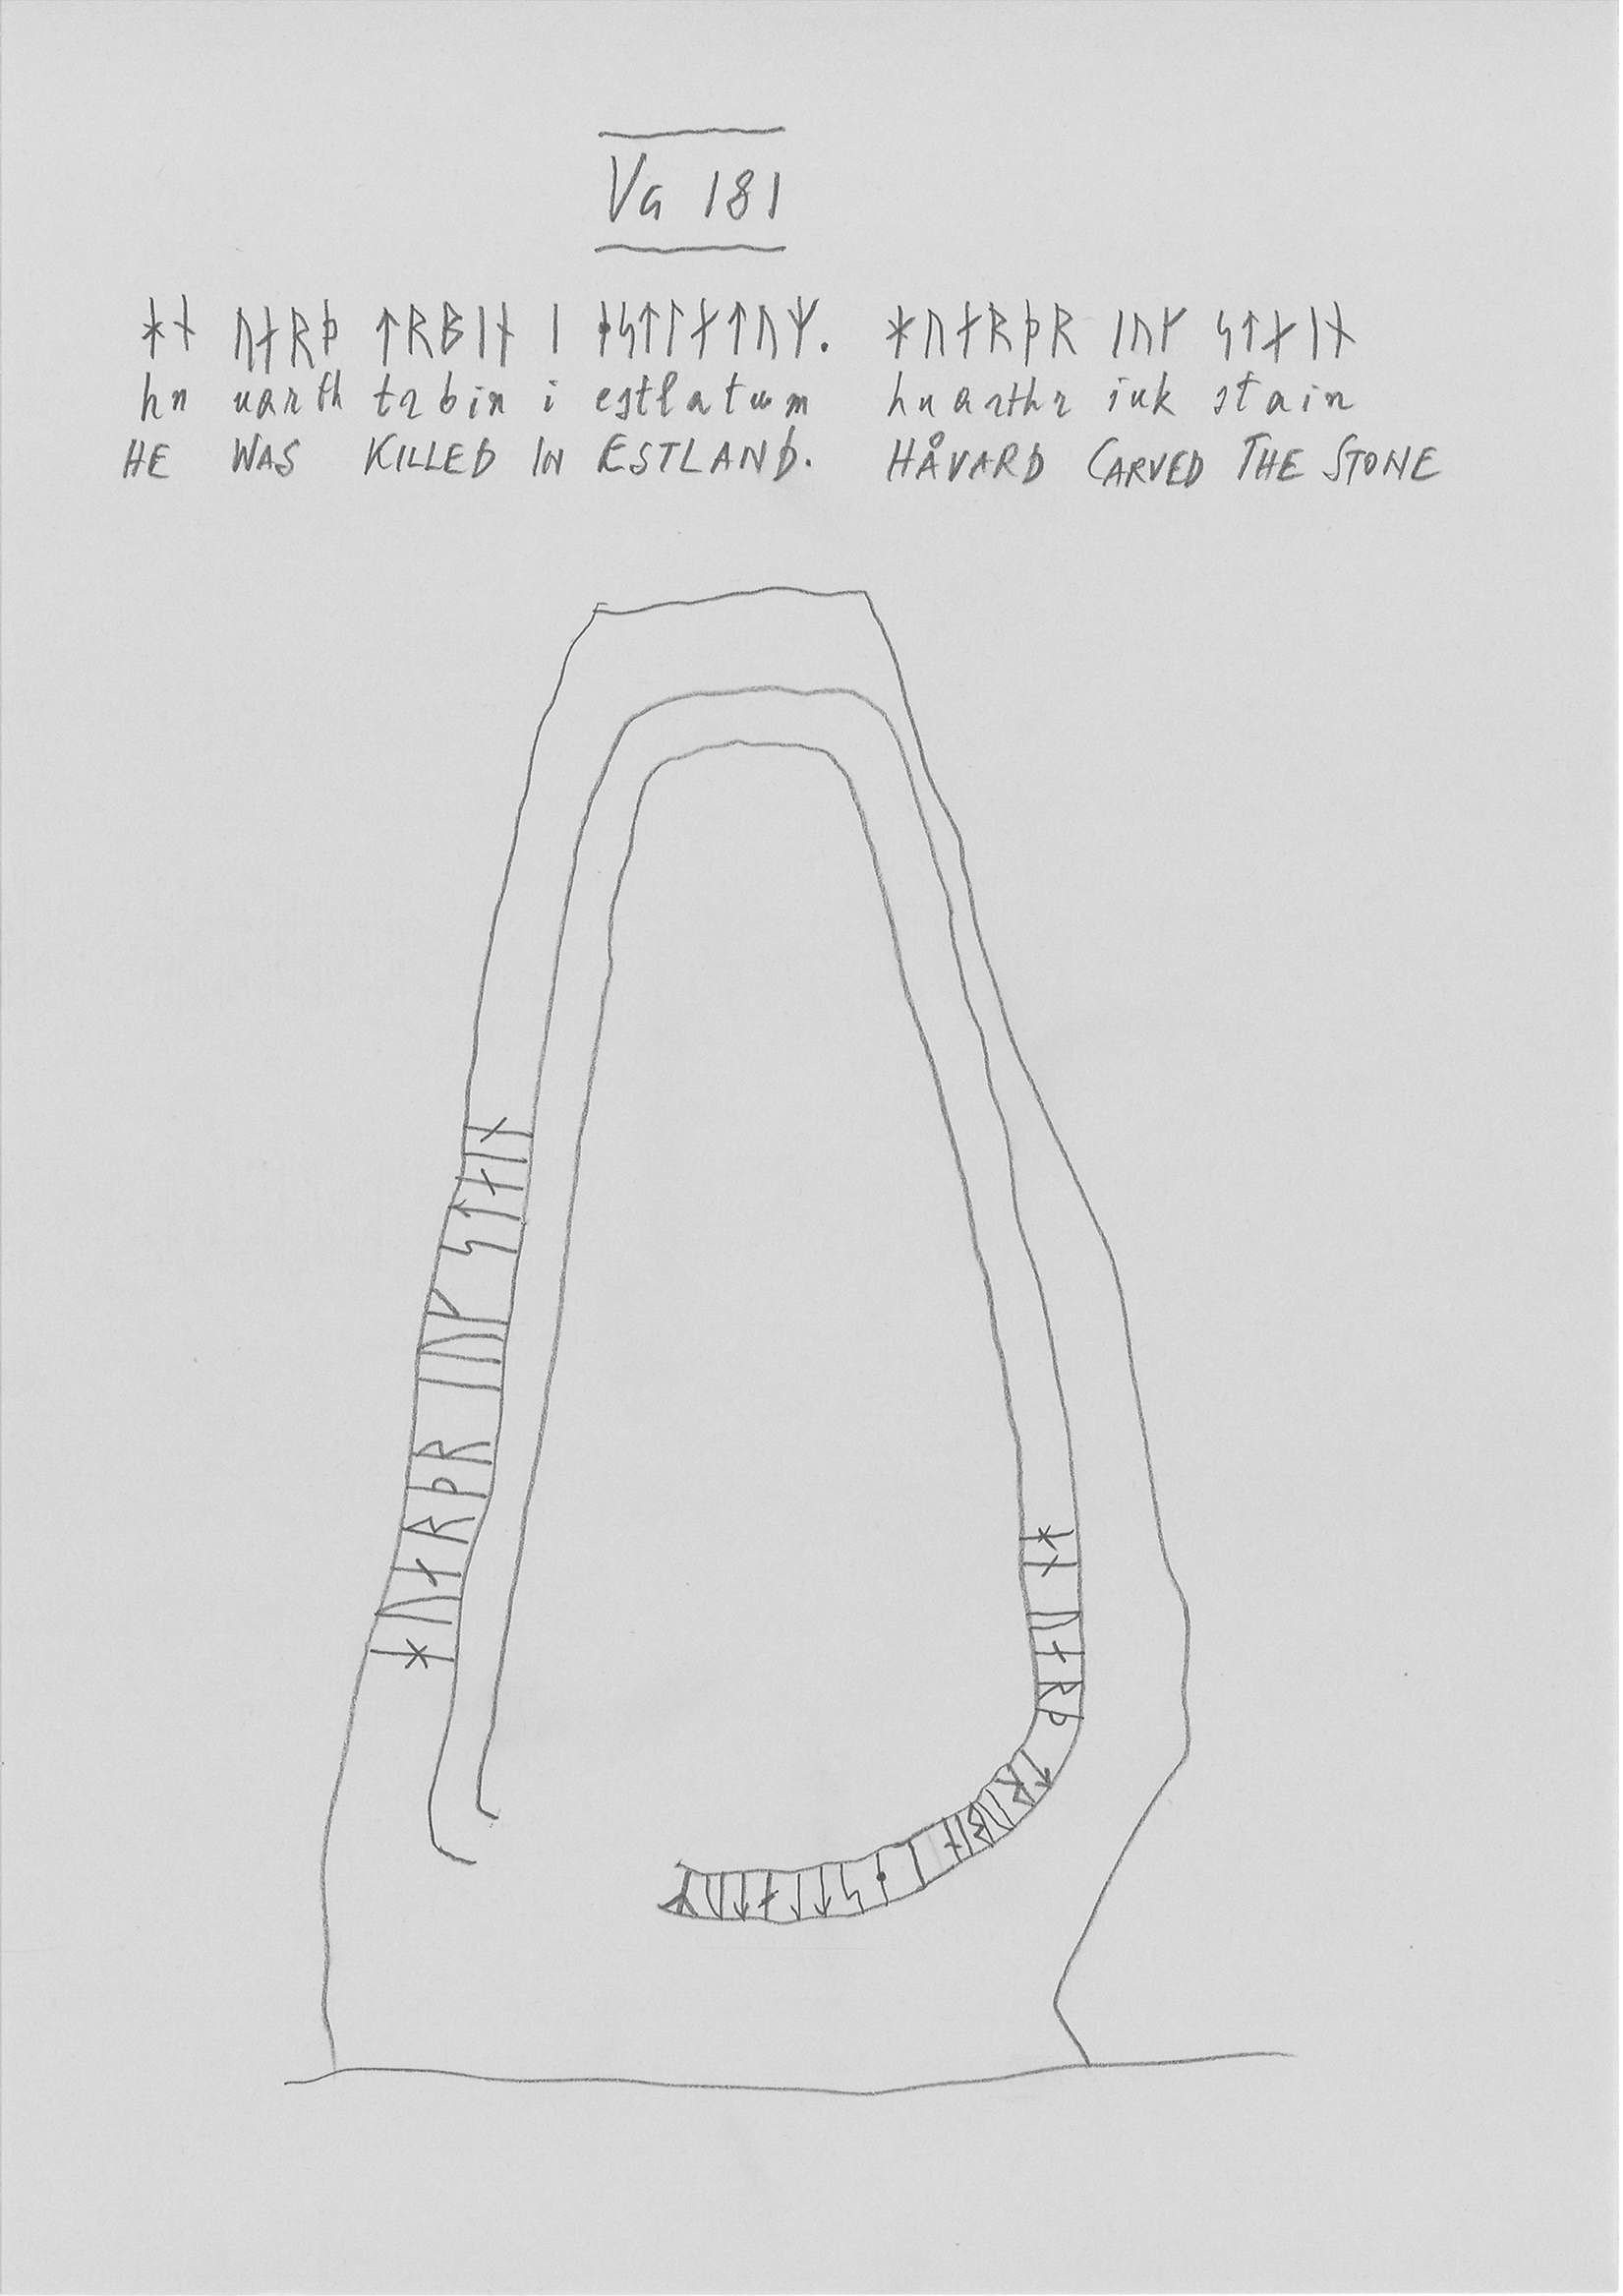 VG 181
ᚼᚾ ᚢᛅᚱᚦ ᛏᚱᛒᛁᚾ ᛁ ᛂᛋᛏᛚᛅᛏᚢᛘ. ᚼᚢᛅᚱᚦᚱ ᛁᚢᚴ ᛋᛏᛅᛁᚾ
hn uarth trbin i estlatum huarthr iuk stain
HE WAS KILLED IN ESTLAND. HÅVARD CARVED THE STONE
ᚼᚢᛅᚱᚦᚱ ᛁᚢᚴ ᛋᛏᛅᛁᚾ
ᚼᚾ ᚢᛅᚱᚦ ᛏᚱᚢᛒᛁᚾ ᛁ ᛂᛋᛏᛚᛅᛏᚢᛘ